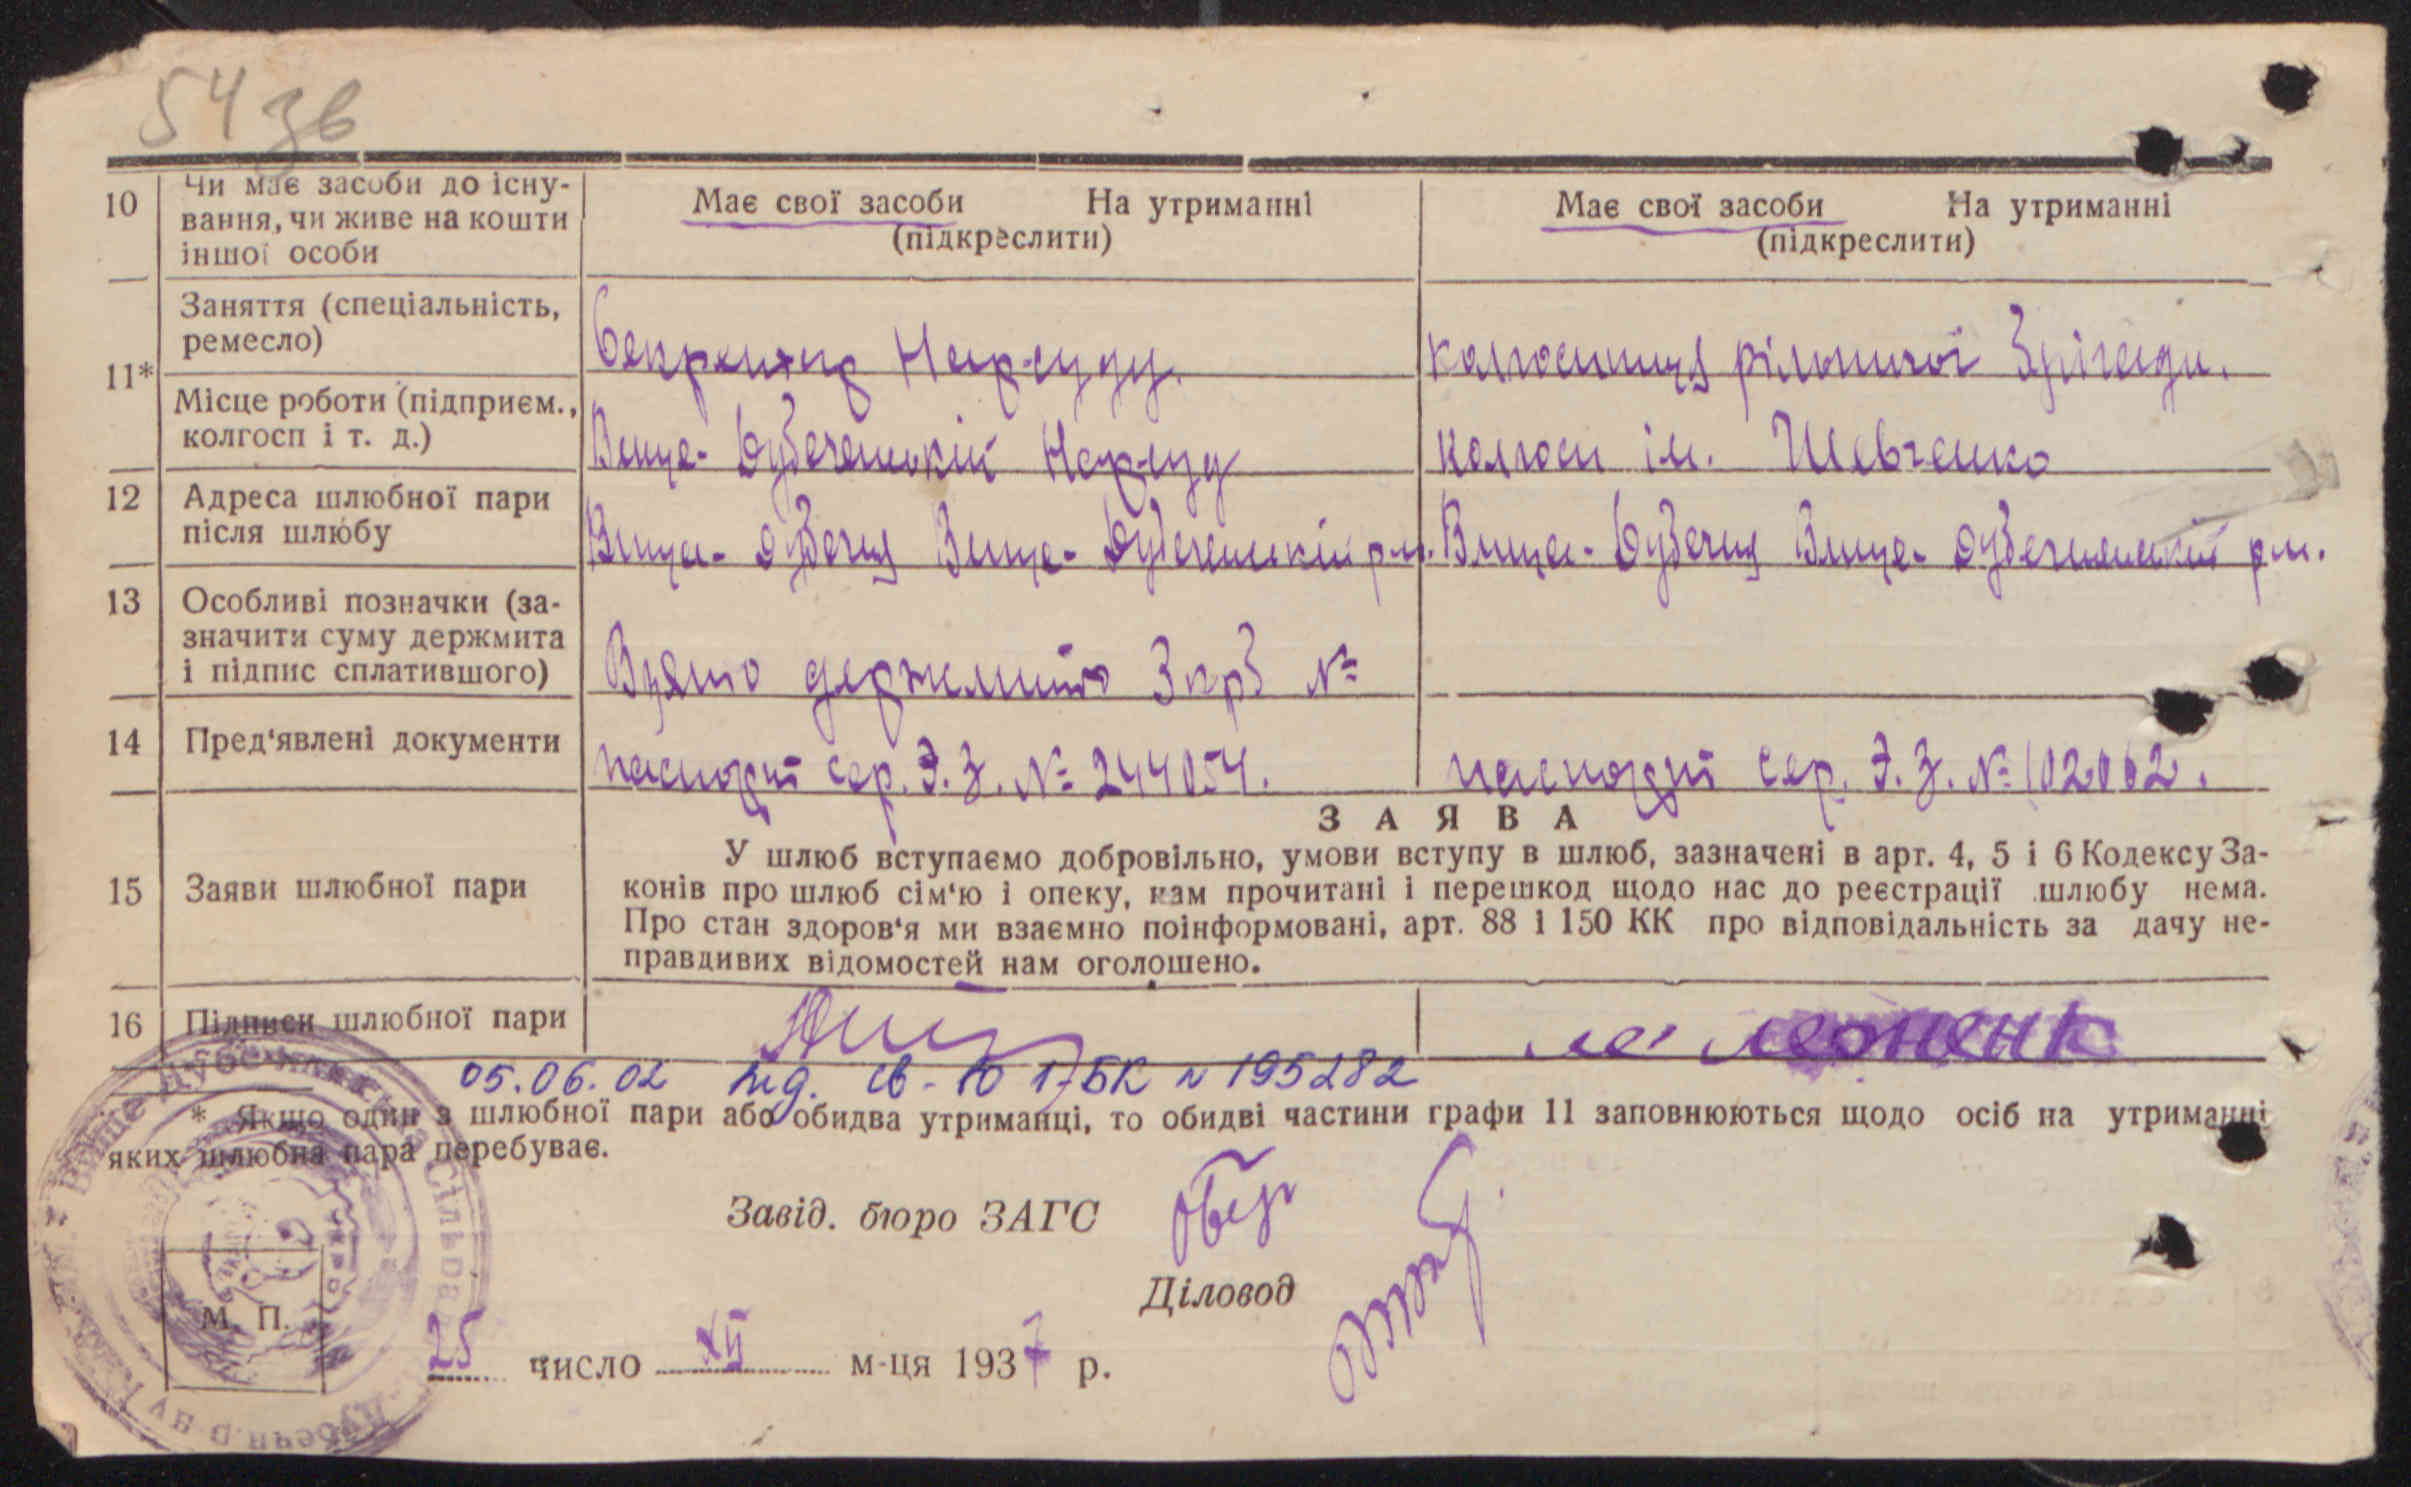 54 зв
10 Чи має засоби до існу-
вання, чи живе на кошти
іншої особи
Має свої засоби На утриманні
(підкреслити)
Має свої засоби На утриманні
(підкреслити)
11*
Заняття (спеціальність,
ремесло)
Секретар Нарсуду.
колгоспниця рільничої брігади.
Місце роботи (підприєм.,
колгосп і т. д.)
Вище-Дубечанський Нарсуд
колгосп ім. Шевченко
12 Адреса шлюбної пари
після шлюбу
Вища-Дубечня Вище-Дубечанський р-н.
Вища-Дубечня Вище-Дубечанський р-н.
13 Особливі позначки (за-
значити суму держмита
і підпис сплатившого)
Взято держмито 3 крб №
14 Пред'явлені документи
паспорт сер. Э.З. № 244054.
паспорт сер. Э.З. № 102062.
15 Заяви шлюбної пари
ЗАЯВА
У шлюб вступаємо добровільно, умови вступу в шлюб, зазначені в арт. 4, 5 і 6 Кодексу За-
конів про шлюб сім'ю і опеку, нам прочитані і перешкод щодо нас до реєстрації шлюбу нема.
Про стан здоров'я ми взаємно поінформовані, арт. 88 і 150 КК про відповідальність за дачу не-
правдивих відомостей нам оголошено.
16 Підписи шлюбної пари
05.06.02 св-во БК № 195282
* Якщо один з шлюбної пари або обидва утриманці, то обидві частини графи 11 заповнюються щодо осіб на утриманні
яких шлюбна пара перебуває.
Завід. бюро ЗАГС
Діловод
М. П.
25 число XII м-ця 1937 р.